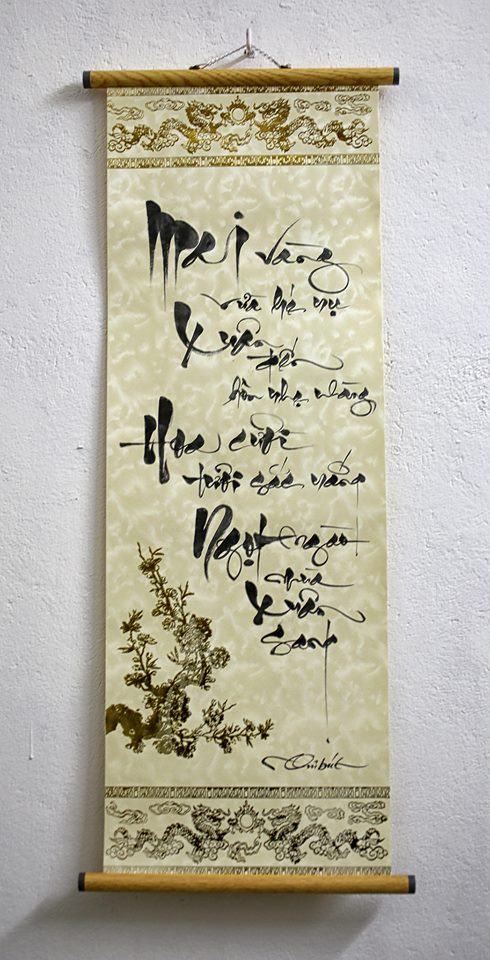 Mai vàng
vừa hé nụ
Xuân
đến
hồn nhẹ nhàng
Hoa cười
tươi sắc nắng
Ngọt ngào
mùa
Xuân
sang